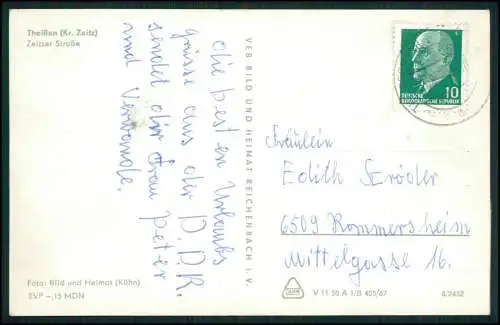 Theißen (Kr. Zeitz)
Zeitzer Straße
die besten Urlaubs
grüsse aus der D.D.R.
sendet dir Frau Peter
und Verwande.
VEB BILD UND HEIMAT REICHENBACH i. V.
DEUTSCHE
DEMOKRATISCHE REPUBLIK
10
Fräulein
Edith Eröder
6509 Rommersheim
Mittelgasse 16.
Foto: Bild und Heimat (Kühn)
EVP -,15 MDN
V 11 50 A I/B 405/67
4/2452